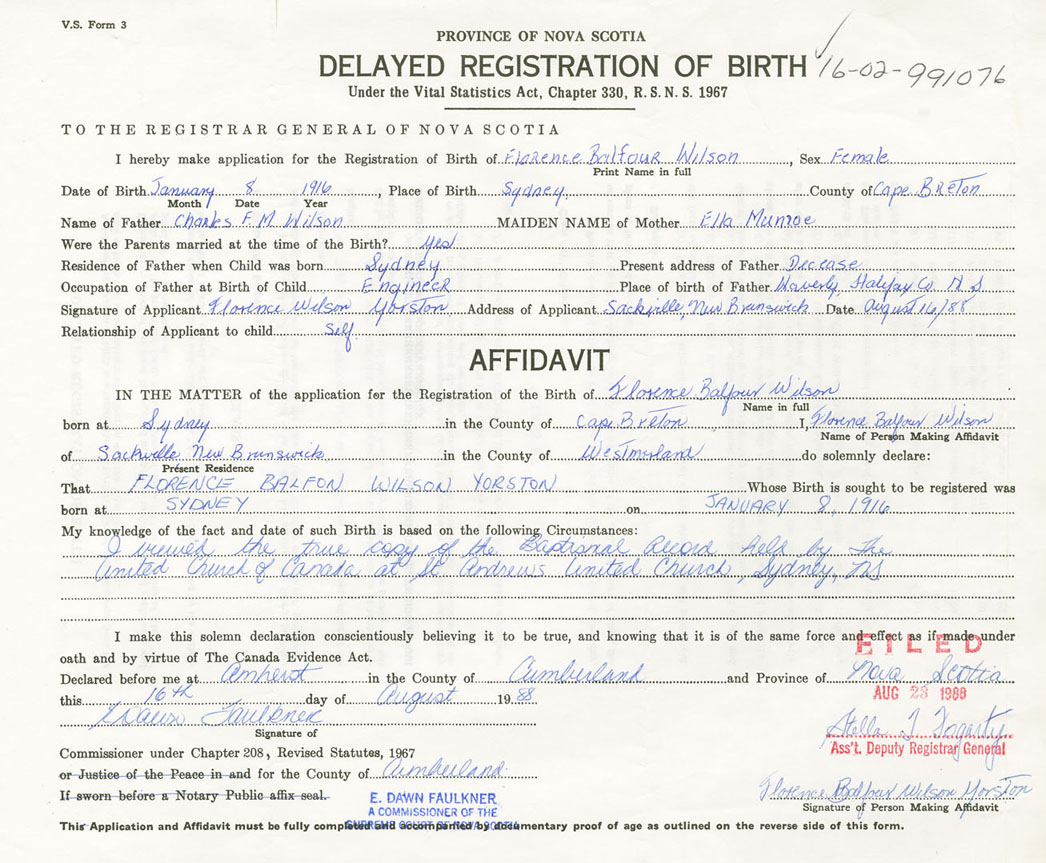 V.S. Form 3
PROVINCE OF NOVA SCOTIA
DELAYED REGISTRATION OF BIRTH 16-02-991076
Under the Vital Statistics Act, Chapter 330, R.S.N.S. 1967
TO THE REGISTRAR GENERAL OF NOVA SCOTIA
I hereby make application for the Registration of Birth of Florence Balfour Wilson, Sex Female
Print Name in full
Date of Birth January 8 1916, Place of Birth Sydney, County of Cape Breton
Month Date Year
Name of Father Charles F.M Wilson MAIDEN NAME of Mother Ella Munroe
Were the Parents married at the time of the Birth? Yes
Residence of Father when Child was born Sydney Present address of Father Decease
Occupation of Father at Birth of Child Engineer Place of birth of Father Waverly, Halifax Co. N S
Signature of Applicant Florence Wilson Yorston Address of Applicant Sackville, New Brunswick Date August 16/88
Relationship of Applicant to child Self
AFFIDAVIT
IN THE MATTER of the application for the Registration of the Birth of Florence Balfour Wilson
Name in full
born at Sydney in the County of Cape Breton I, Florence Balfour Wilson
Name of Person Making Affidavit
of Sackville New Brunswick in the County of Westmorland do solemnly declare:
Present Residence
That FLORENCE BALFON WILSON YORSTON Whose Birth is sought to be registered was
born at SYDNEY on JANUARY 8, 1916
My knowledge of the fact and date of such Birth is based on the following Circumstances:
I viewed the true copy of the Baptismal Record held by the
United Church of Canada at St Andrews United Church, Sydney, NS
I make this solemn declaration conscientiously believing it to be true, and knowing that it is of the same force and effect as if made under
oath and by virtue of The Canada Evidence Act.
FILED
Declared before me at Amherst in the County of Cumberland and Province of Nova Scotia
this 16th day of August 1988
AUG 23 1988
E Dawn Faulkner
Stella T Fogarty
Signature of
Ass't. Deputy Registrar General
Commissioner under Chapter 208, Revised Statutes, 1967
or Justice of the Peace in and for the County of Cumberland
If sworn before a Notary Public affix seal.
E. DAWN FAULKNER
A COMMISSIONER OF THE
SUPREME COURT OF NOVA SCOTIA
Florence Balfour Wilson Yorston
Signature of Person Making Affidavit
This Application and Affidavit must be fully completed and accompanied by documentary proof of age as outlined on the reverse side of this form.